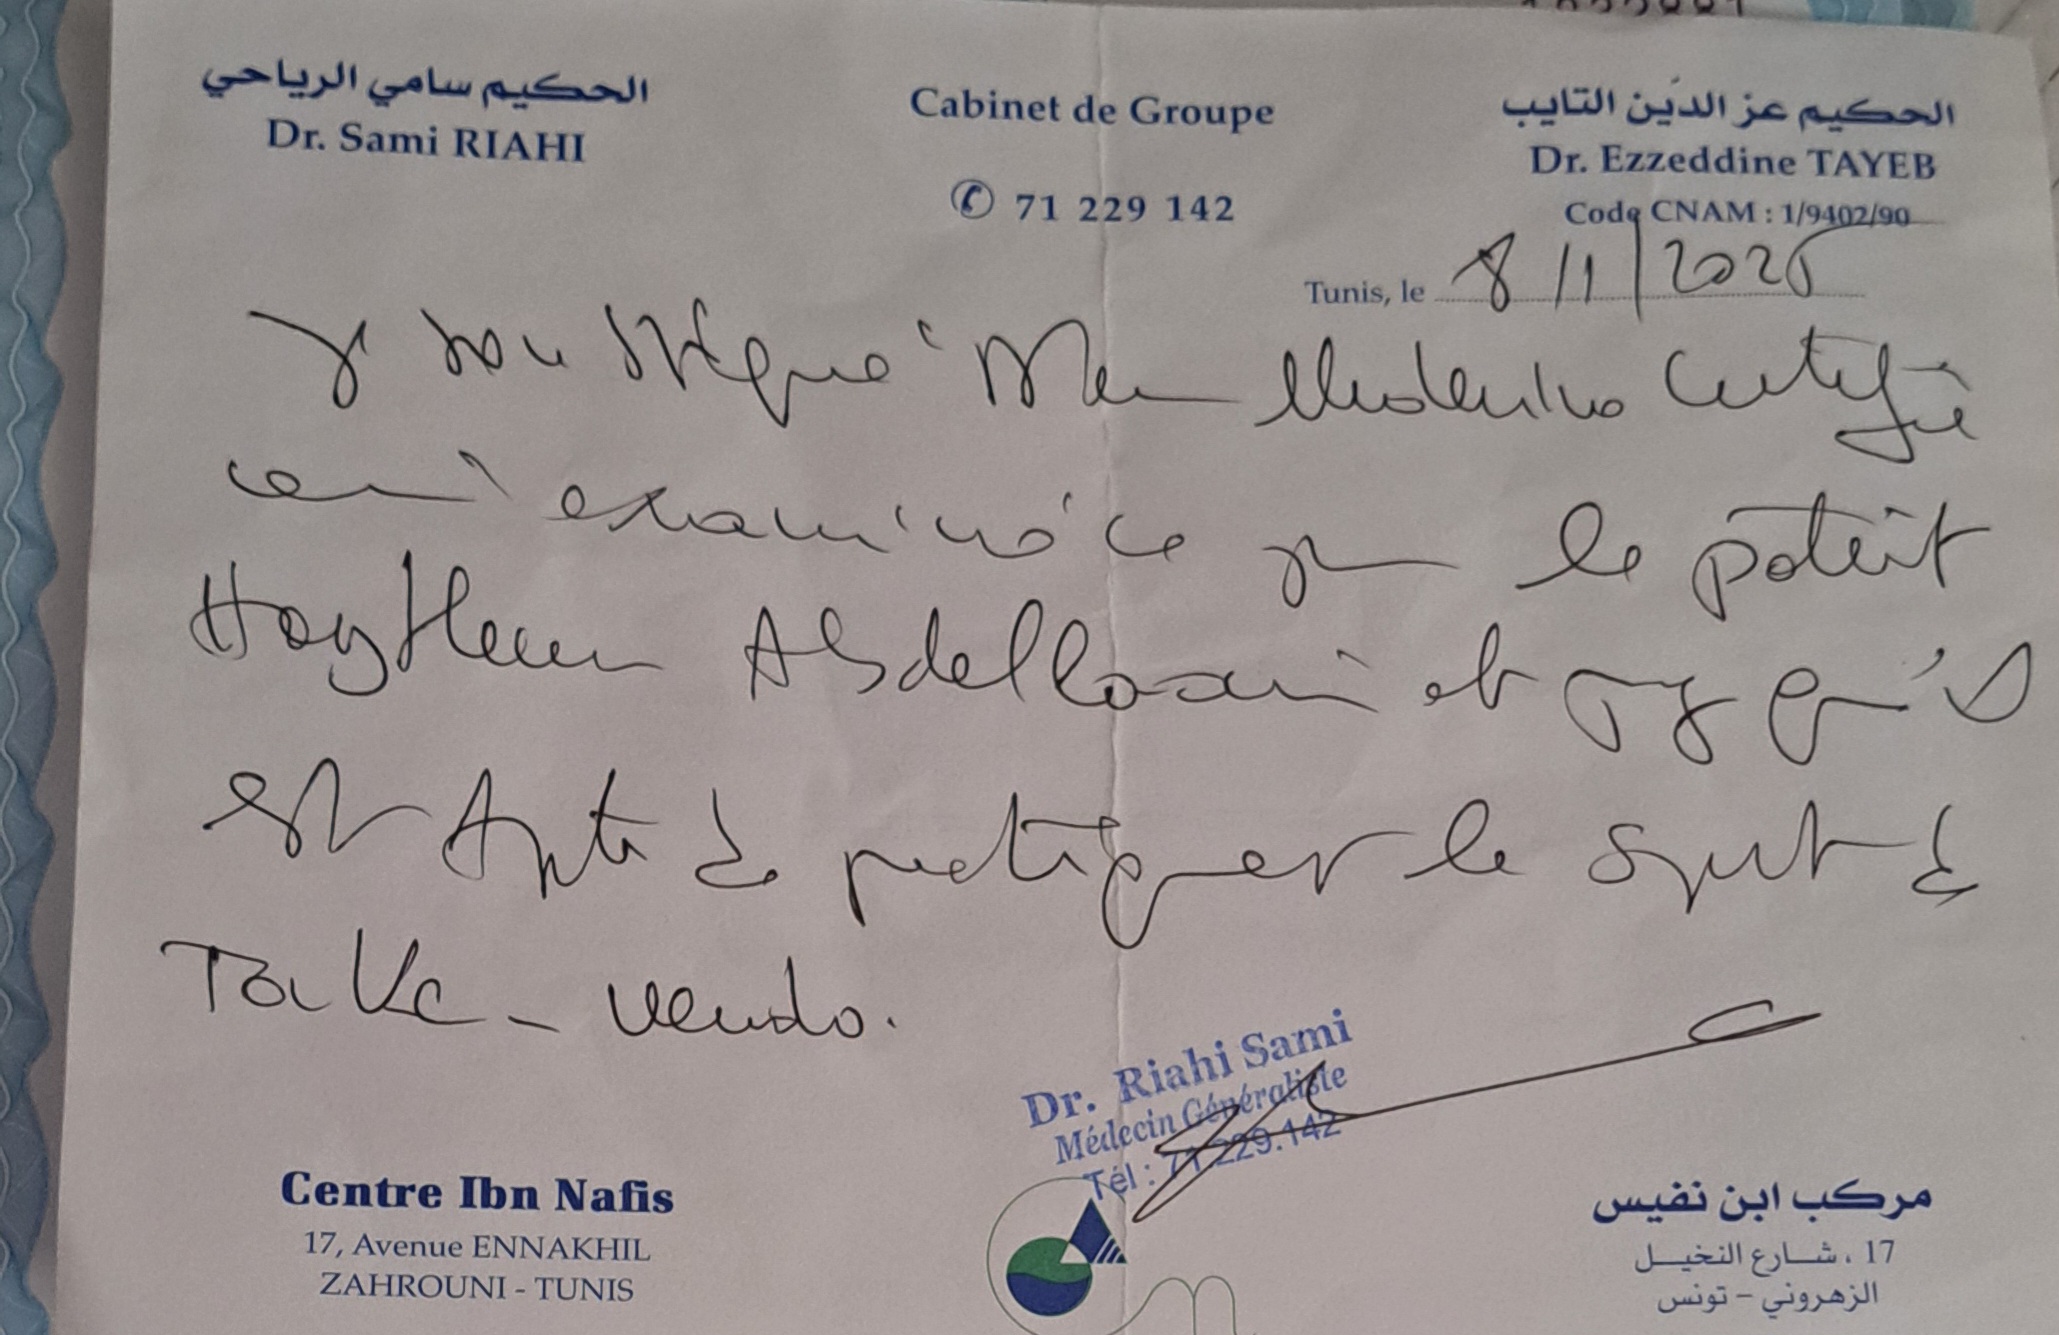 الحكيم سامي الرياحي
Dr. Sami RIAHI
Cabinet de Groupe
71 229 142
الحكيم عز الدين التايب
Dr. Ezzeddine TAYEB
Code CNAM : 1/9402/90
Tunis, le 8/1/2026
Je soussigné certifie
examiné ce jour le patient
Haythem Abdellaoui et qu'il
est Apte à pratiquer le sport de
Taïkwendo.
Dr. Riahi Sami
Médecin Généraliste
Tél : 71.229.142
Centre Ibn Nafis
17, Avenue ENNAKHIL
ZAHROUNI - TUNIS
مركب ابن نفيس
17 ، شارع النخيل
الزهروني - تونس